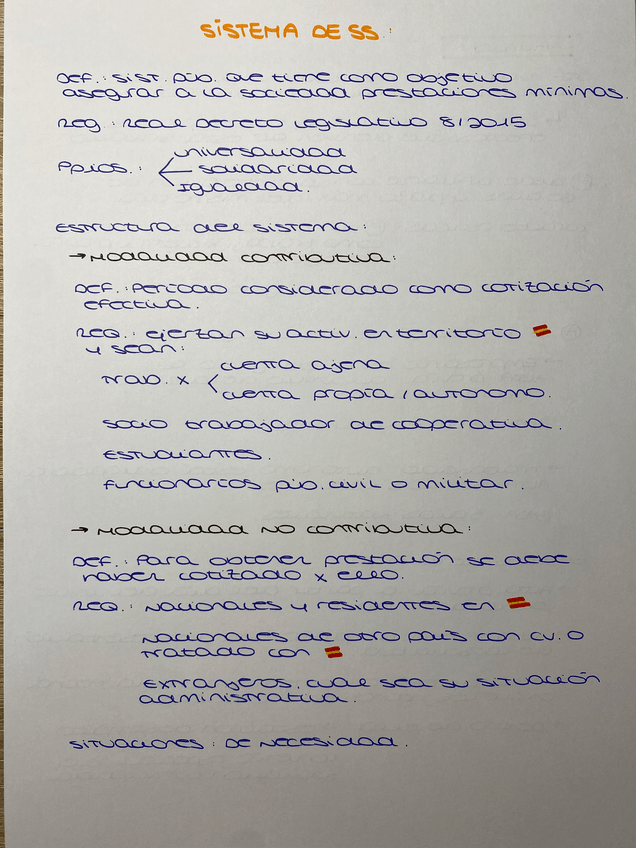 SISTEMA DE SS:
DEF.: SIST. PÚB. QUE TIENE COMO OBJETIVO
ASEGURAR A LA SOCIEDAD PRESTACIONES MÍNIMAS.
REG.: REAL DECRETO LEGISLATIVO 8/2015
PPIOS.:
UNIVERSALIDAD
SOLIDARIDAD
IGUALDAD.
ESTRUCTURA DEL SISTEMA:
→ MODALIDAD CONTRIBUTIVA:
DEF.: PERIODO CONSIDERADO COMO COTIZACIÓN
EFECTIVA.
REQ.: EJERZAN SU ACTIV. EN TERRITORIO
Y SEAN:
TRAB. X
CUENTA AJENA
CUENTA PROPIA / AUTÓNOMO.
SOCIO TRABAJADOR DE COOPERATIVA.
ESTUDIANTES.
FUNCIONARIOS PÚB. CIVIL O MILITAR.
→ MODALIDAD NO CONTRIBUTIVA:
DEF.: PARA OBTENER PRESTACIÓN SE DEBE
HABER COTIZADO X ELLO.
REQ.: NACIONALES Y RESIDENTES EN
NACIONALES DE OTRO PAÍS CON CV. O
TRATADO CON
EXTRANJEROS, CUAL SEA SU SITUACIÓN
ADMINISTRATIVA.
SITUACIONES: DE NECESIDAD.